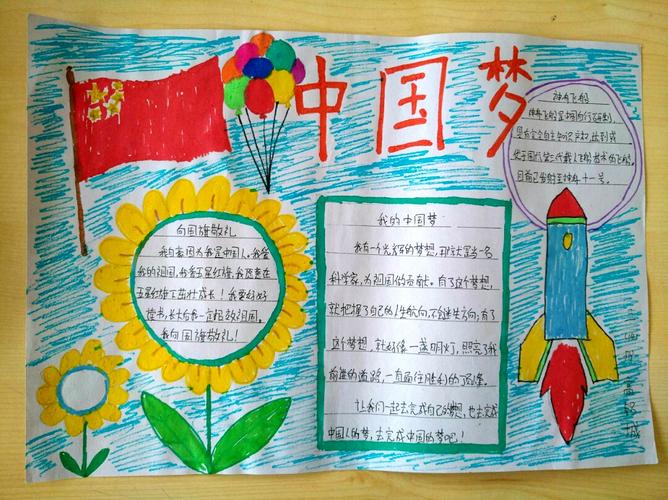 中国梦
向国旗敬礼
我自豪因为我是中国人。我爱
我的祖国,我爱五星红旗,我愿意在
五星红旗下茁壮成长!我要好好
读书,长大后我一定报效祖国。
我向国旗敬礼!
我的中国梦
我有一个光辉的梦想,那就是当一名
科学家,为祖国做贡献。有了这个梦想,
就把握了自己的人生航向,不会迷失方向;有了
这个梦想,就好像一盏明灯,照亮了我
前进的道路,一直通往胜利的顶峰。
让我们一起去完成自己的梦想,也去完成
中国人的梦,去完成中国的梦吧!
神舟飞船
神舟飞船是中国自行研制,
具有完全自主知识产权,达到或
优于国际第三代载人飞船技术的飞船,
目前已发射至神舟十一号。